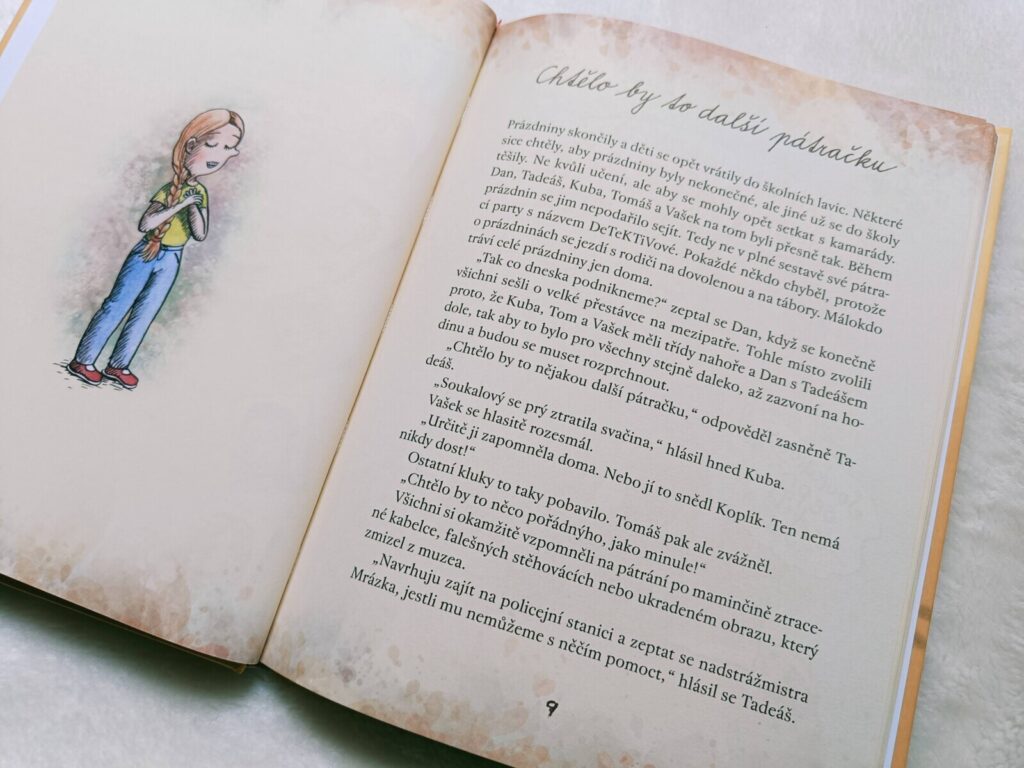 Chtělo by to další pátračku
Prázdniny skončily a děti se opět vrátily do školních lavic. Některé
sice chtěly, aby prázdniny byly nekonečné, ale jiné už se do školy
těšily. Ne kvůli učení, ale aby se mohly opět setkat s kamarády.
Dan, Tadeáš, Kuba, Tomáš a Vašek na tom byli přesně tak. Během
prázdnin se jim nepodařilo sejít. Tedy ne v plné sestavě své pátra-
cí party s názvem DeTeKTiVové. Pokaždé někdo chyběl, protože
o prázdninách se jezdí s rodiči na dovolenou a na tábory. Málokdo
tráví celé prázdniny jen doma.
„Tak co dneska podnikneme?“ zeptal se Dan, když se konečně
všichni sešli o velké přestávce na mezipatře. Tohle místo zvolili
proto, že Kuba, Tom a Vašek měli třídy nahoře a Dan s Tadeášem
dole, tak aby to bylo pro všechny stejně daleko, až zazvoní na ho-
dinu a budou se muset rozprchnout.
„Chtělo by to nějakou další pátračku,“ odpověděl zasněně Ta-
deáš.
„Soukalový se prý ztratila svačina,“ hlásil hned Kuba.
Vašek se hlasitě rozesmál.
„Určitě ji zapomněla doma. Nebo jí to snědl Koplík. Ten nemá
nikdy dost!“
Ostatní kluky to taky pobavilo. Tomáš pak ale zvážněl.
„Chtělo by to něco pořádnýho, jako minule!“
Všichni si okamžitě vzpomněli na pátrání po maminčině ztrace-
né kabelce, falešných stěhovácích nebo ukradeném obrazu, který
zmizel z muzea.
„Navrhuju zajít na policejní stanici a zeptat se nadstrážmistra
Mrázka, jestli mu nemůžeme s něčím pomoct,“ hlásil se Tadeáš.
9